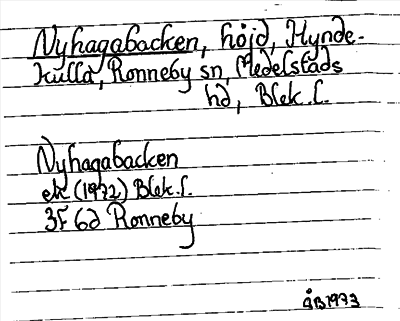 Nyhagabacken, höjd, Hynde-
kulla, Ronneby sn, Medelstads
hd, Blek.l.
Nyhagabacken
ek (1972) Blek.l.
3F 6d Ronneby
ÅB 1973